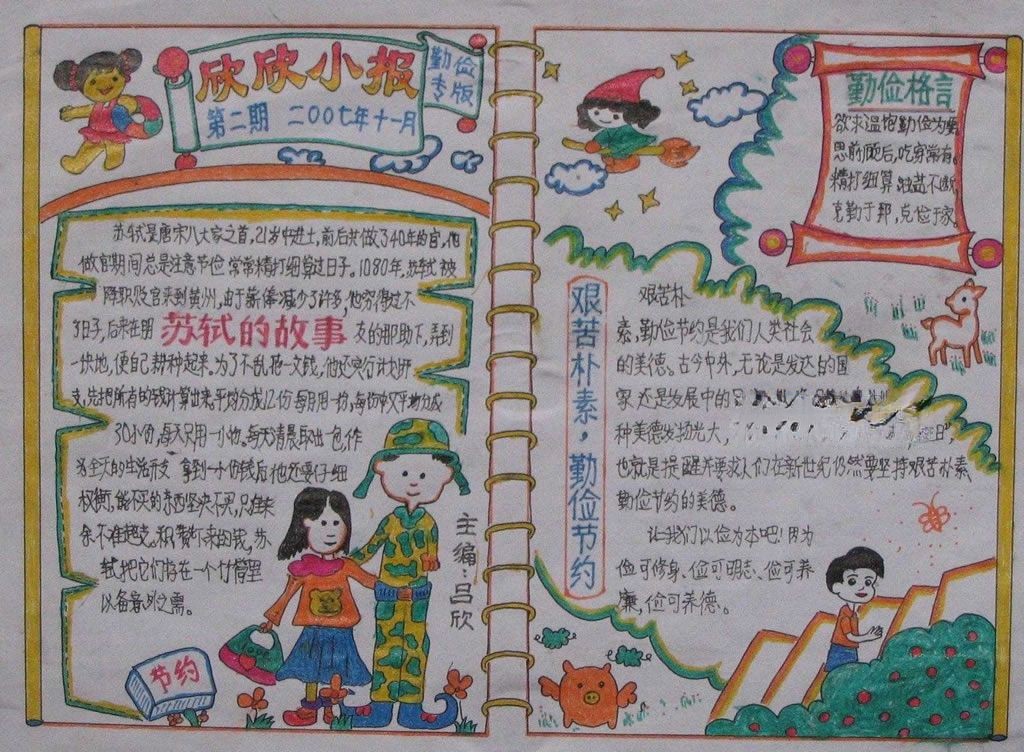 欣欣小报
勤俭
专版
第二期 二00七年十一月
苏轼是唐宋八大家之首,21岁中进士,前后共做了40年的官,他
做官期间总是注意节俭常常精打细算过日子。1080年,苏轼被
降职贬官来到黄州,由于薪俸减少了许多,他穷得过不
了日子,后来在朋
苏轼的故事
友的帮助下,弄到
一块地,便自己耕种起来,为了不乱花一文钱,他还实行计划开
支,先把所有的钱计算出来,平均分成12份每月用一份,每份中又平均分成
30小份,每天只用一小份,每天清晨取出一包,作
为全天的生活开支 拿到一小份钱后他还要仔细
权衡,能不买的东西坚决不买,只准剩
余不准超支。积攒下来的钱,苏
轼把它们存在一个竹筒里
以备意外之需。
节约
主编:吕欣
勤俭格言
欲求温饱勤俭为要
思前顾后,吃穿常有
精打细算 油盐不断
克勤于邦,克俭于家
艰苦朴素·勤俭节约
艰苦朴
素,勤俭节约是我们人类社会
的美德。古今中外,无论是发达的国
家还是发展中的
种美德发扬光大, 日"
也就是提醒并要求人们在新世纪仍然要坚持艰苦朴素
勤俭节约的美德。
让我们以俭为本吧!因为
俭可修身、俭可明志、俭可养
廉,俭可养德。